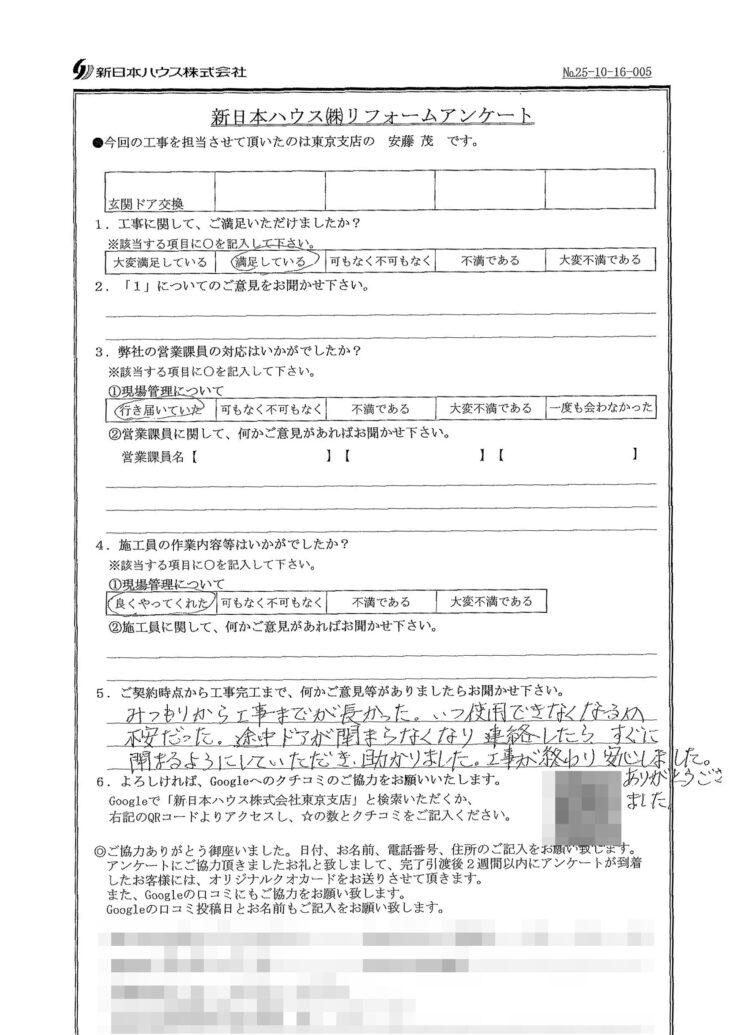 新日本ハウス株式会社
№25-10-16-005
新日本ハウス㈱リフォームアンケート
●今回の工事を担当させて頂いたのは東京支店の 安藤 茂 です。
玄関ドア交換
1．工事に関して、ご満足いただけましたか？
※該当する項目に○を記入して下さい。
大変満足している 満足している 可もなく不可もなく 不満である 大変不満である
2．「1」についてのご意見をお聞かせ下さい。
3．弊社の営業課員の対応はいかがでしたか？
※該当する項目に○を記入して下さい。
①現場管理について
行き届いていた 可もなく不可もなく 不満である 大変不満である 一度も会わなかった
②営業課員に関して、何かご意見があればお聞かせ下さい。
営業課員名【 】【 】【 】
4．施工員の作業内容等はいかがでしたか？
※該当する項目に○を記入して下さい。
①現場管理について
良くやってくれた 可もなく不可もなく 不満である 大変不満である
②施工員に関して、何かご意見があればお聞かせ下さい。
5．ご契約時点から工事完工まで、何かご意見等がありましたらお聞かせ下さい。
みつもりから工事までが長かった。いつ使用できなくなるか
不安だった。途中ドアが閉まらなくなり連絡したら すぐに
閉まるようにしていただき、助かりました。工事が終わり安心しました。
ありがとうござ
ました。
6．よろしければ、Googleへのクチコミのご協力をお願いいたします。
Googleで「新日本ハウス株式会社東京支店」と検索いただくか、
右記のQRコードよりアクセスし、☆の数とクチコミをご記入ください。
◎ご協力ありがとう御座いました。日付、お名前、電話番号、住所のご記入をお願い致します。
アンケートにご協力頂きましたお礼と致しまして、完了引渡後2週間以内にアンケートが到着
したお客様には、オリジナルクオカードをお送りさせて頂きます。
また、Googleの口コミにもご協力をお願い致します。
Googleの口コミ投稿日とお名前もご記入をお願い致します。